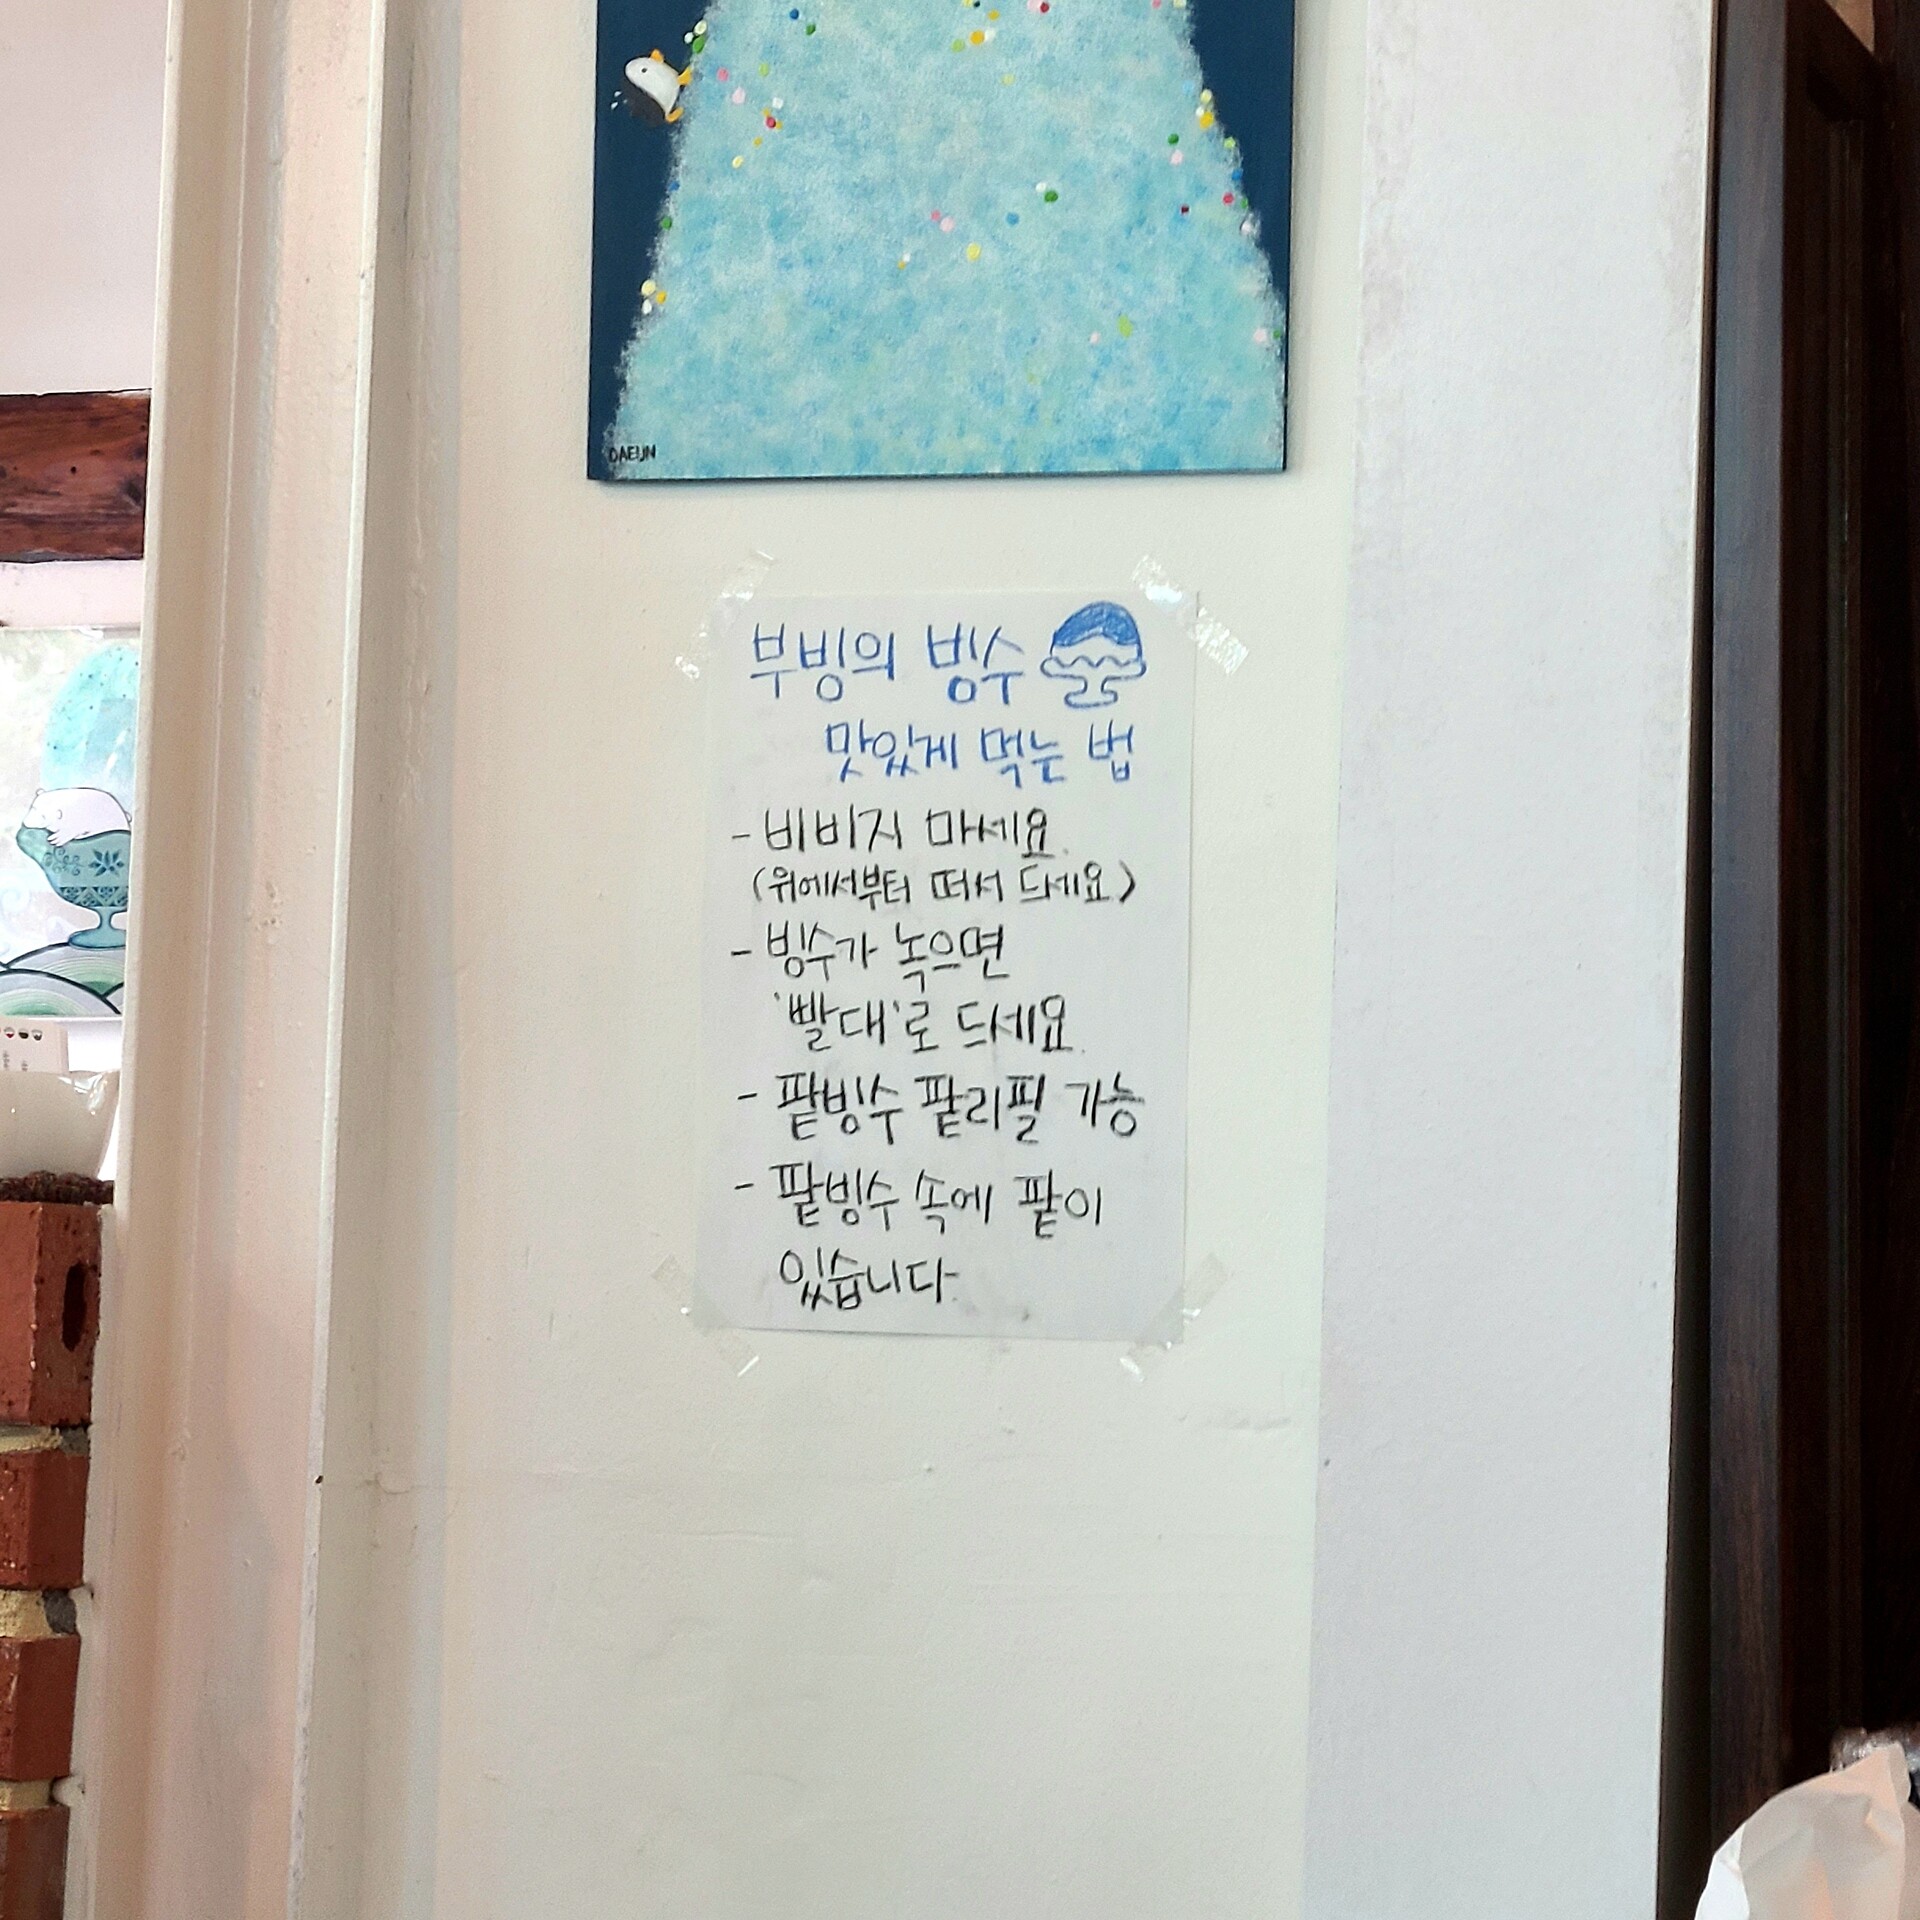 DAEUN
부빙의 빙수
맛있게 먹는 법
- 비비지 마세요.
(위에서부터 떠서 드세요)
- 빙수가 녹으면
'빨대'로 드세요.
- 팥빙수 팥리필 가능
- 팥빙수 속에 팥이
있습니다.